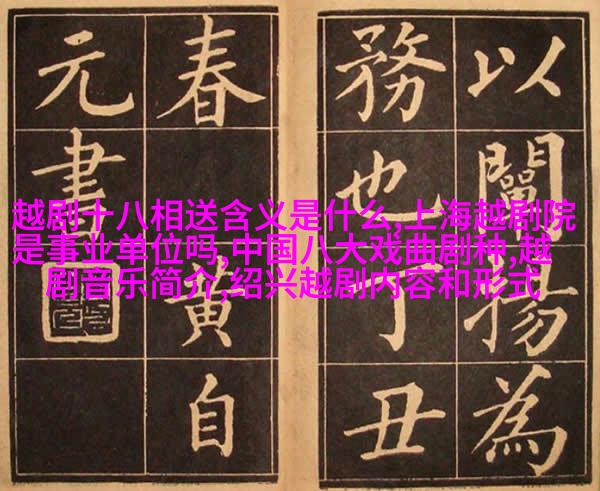 越剧十八相送含义是什么,上海越剧院
是事业单位吗,中国八大戏曲剧种,越
剧音乐简介,绍兴越剧内容和形式
以闡揚為
務也丁丑
春黄自
元書